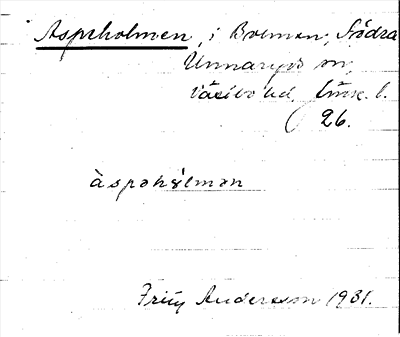 Asprholmen, i Bolmen, Södra
Unnaryds sn,
Västbo hd,
26.
àspəhɵ̀lmən
Andersson 1931.